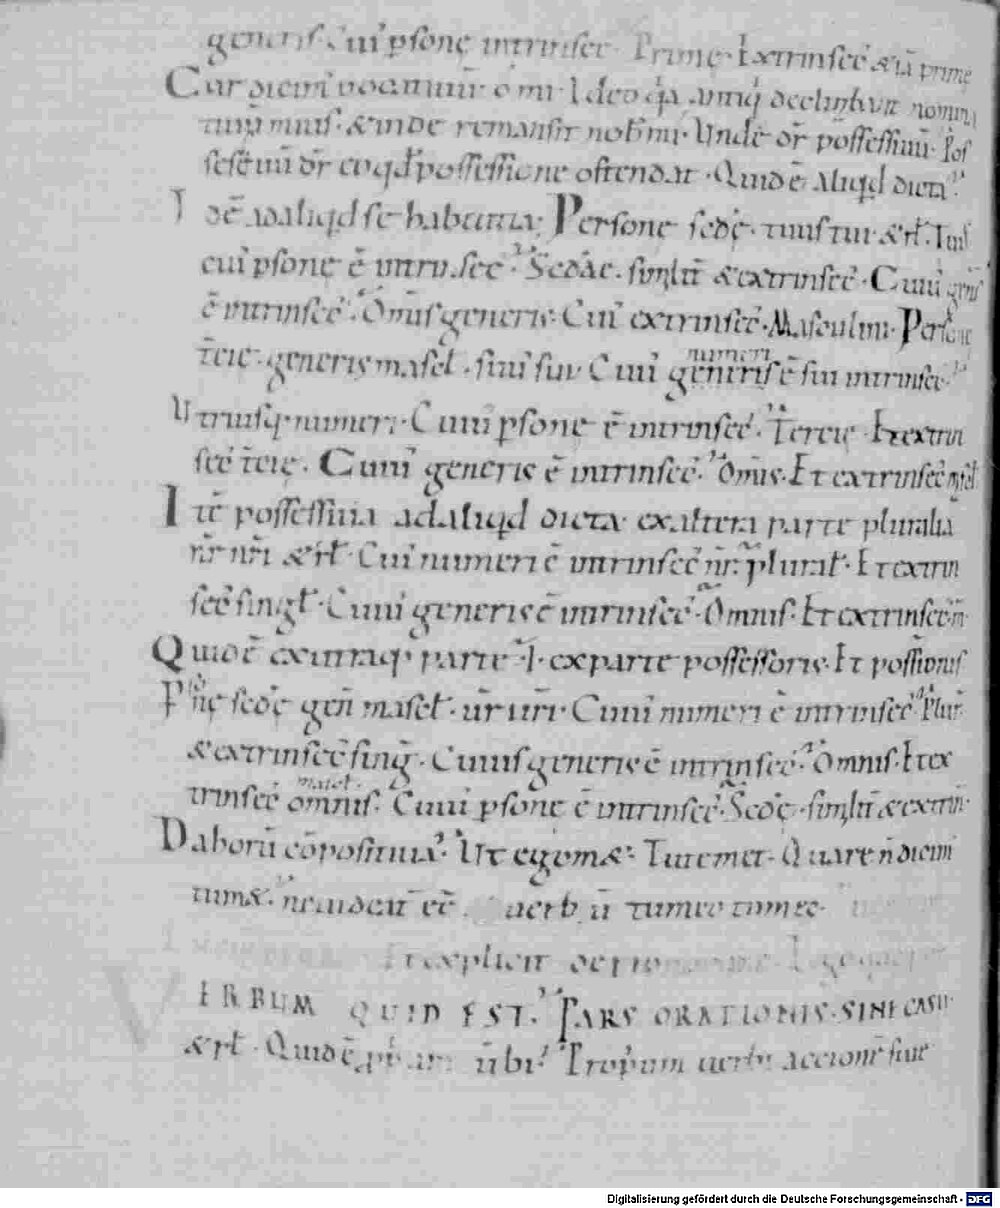 generis. Cui' psone intrinsec. Prime. Extrinsec' & iā prime
Cur dicim' vocatiuū. o mi. Ideo q̄a antiq' declinabant nomina
tiuū mius. & inde remansit nob mi. Unde dr̄ possessiuū. Pos
sessiuū dr̄ eo qd possessione ostendat. Quid ē aliqd dicta?
Idē ad aliqd se habentia. Persone sedę. tuus tui. & rł. Tuus
cui' psone ē intrinsec'? Sedae. similit' & extrinsec'. Cuiu' generis
ē intrinsec'? Omnis generis. Cui' extrinsec'. Masculini. Persone
tcie. generis mascl. sui' sui. Cuiu' generis numeri ē sui intrinsec'?
Utriusq. numeri. Cuiu' psone ē intrinsec'? Tercie. Et extrin
sec' tcie. Cuiu' generis ē intrinsec'? Omis. Et extrinsec' mscl
Itē possessiua ad aliqd dicta ex altera parte pluralia
nr̄ nr̄i & rł. Cui' numeri ē intrinsec' nr̄. plural. Et extrin
sec' singł. Cuiu' generis ē intrinsec'? Omnis. Et extrinsec'
Quid ē ex utraq' parte? I. ex parte possessoris. Et possessionis
Psonę sedę gen̄ mascł. ur̄ ur̄i. Cuiu' numeri ē intrinsec'? Plur
& extrinsec' sing. Cuius generis ē intrinsec'? Omnis. Et ex
trinsec' omnis mascł. Cuiu' psone ē intrinsec'? Sedę. similit' & extrin
Da horū cōpositiua? Ut egomæ. Tutemet. Quare n̄ dicim'
tumæ. ne uideat' eē uerbū tumeo tumes.
Explicit de pronomine.
VERBUM QUID EST? PARS ORATIONIS. SINE CASU
& rł. Quid ē ubi? Propium uerbi accionē siue